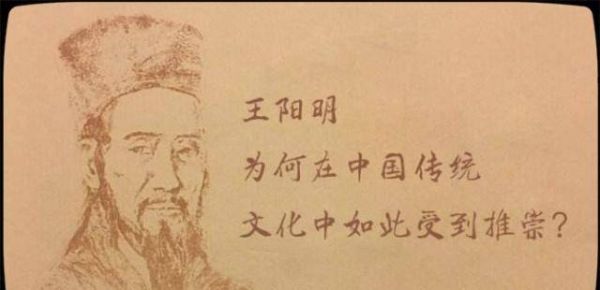 王阳明
为何在中国传统
文化中如此受到推崇？